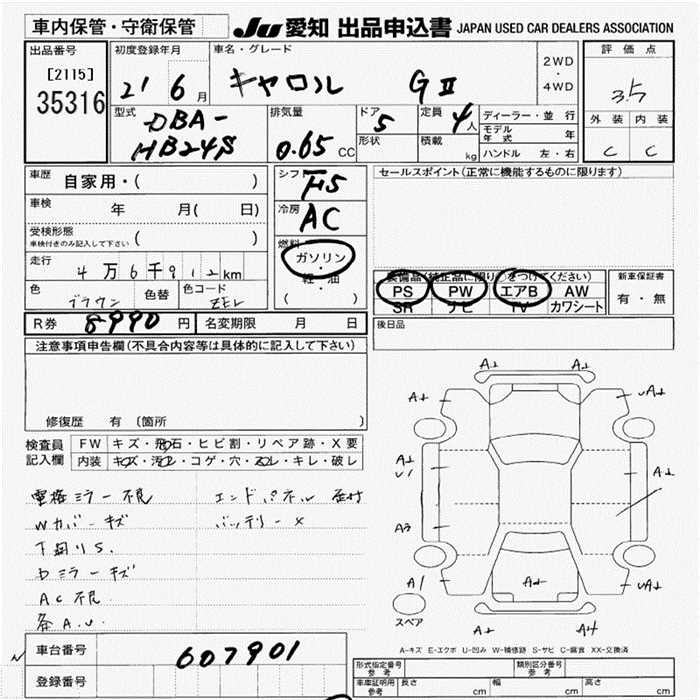 車内保管・守衛保管
JU 愛知 出品申込書 JAPAN USED CAR DEALERS ASSOCIATION
出品番号
[2115]
35316
初度登録年月
21 6月
車名・グレード
キャロル GⅡ
2WD
・
4WD
評価点
3.5
外装 内装
C C
型式
DBA-
HB24S
排気量
0.65 CC
ドア
5
形状
定員
4人
積載
kg
ディーラー・並行
モデル年式 年
ハンドル 左・右
車歴 自家用・( )
車検 年 月( 日)
受検形態
車検付きのみ記入して下さい ( )
走行 4万6千912km
色 ブラウン 色替 色コード ZEL
シフト F5
冷房 AC
燃料
ガソリン
・
軽・油
( )
セールスポイント(正常に機能するものに限ります)
装備品(純正品に限り○をつけてください)
PS PW エアB AW
SR ナビ TV カワシート
新車保証書
有・無
R券 8990円 名変期限 月 日
後日品
注意事項申告欄(不具合内容等は具体的に記入して下さい)
修復歴 有〔箇所 〕
検査員記入欄
FW キズ・飛石・ヒビ割・リペア跡・X要
内装 キズ・汚れ・コゲ・穴・スレ・キレ・破レ
電格ミラー不良 エンドパネル
Wカバーキズ バッテリーX
下廻りS.
Dミラーキズ
AC不良
各A.U.
A1 A1
A1 UA1
A1 A1
U1
A3
A1 A2 UA1
A2 A4
スペア
A-キズ E-エクボ U-凹み W-補修跡 S-サビ C-腐食 XX-交換済
車台番号 607901
登録番号
形式指定番号
参考
類別区分番号
参考
車庫証明用
参考
長さ cm 幅 cm 高さ cm